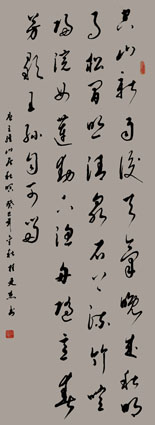 空山新雨後天氣晚來秋明
月松間照清泉石上流竹喧
歸浣女蓮動下漁舟隨意春
芳歇王孫自可留
唐王維山居秋暝癸巳年